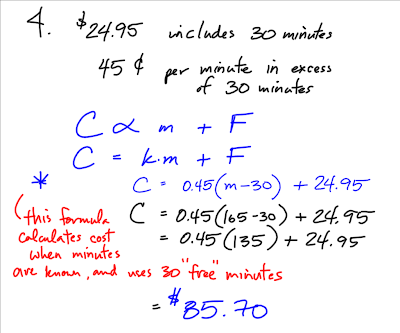 4. $24.95 includes 30 minutes
45 ¢ per minute in excess
of 30 minutes
C ∝ m + F
C = k·m + F
* C = 0.45(m-30) + 24.95
(this formula
calculates cost
when minutes
are known, and uses 30 "free" minutes
C = 0.45(165-30) + 24.95
= 0.45(135) + 24.95
= $85.70